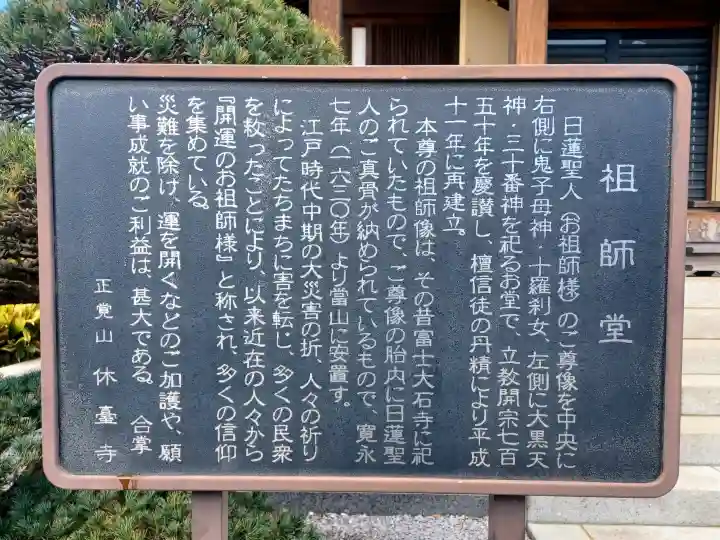 祖師堂
日蓮聖人(お祖師様)のご尊像を中央に
右側に鬼子母神・十羅刹女、左側に大黒天
神・三十番神を祀るお堂で、立教開宗七百
五十年を慶讃し、檀信徒の丹精により平成
十一年に再建立。
本尊の祖師像は、その昔富士大石寺に祀
られていたもので、ご尊像の胎内に日蓮聖
人のご真骨が納められているもので、寛永
七年(一六三〇年)より當山に安置す。
江戸時代中期の大災害の折、人々の祈り
によってたちまちに害を転じ、多くの民衆
を救ったことにより、以来近在の人々から
『開運のお祖師様』と称され、多くの信仰
を集めている。
災難を除け、運を開くなどのご加護や、願
い事成就のご利益は、甚大である。 合掌
正覚山 休臺寺